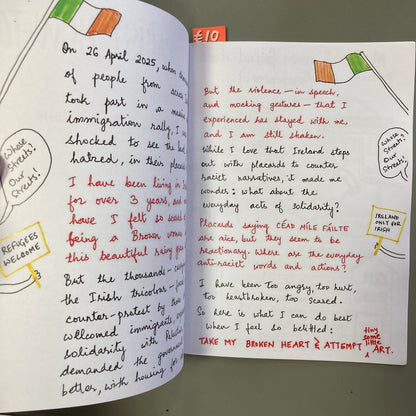 On 26 April 2025, when
of people from
took part in a
immigration rally, I
shocked to see the
hatred, in their
I have been living in
for over 3 years, and
have I felt so
being a Brown
this beautiful rainy
But the thousands -
the Irish tricolour -
counter-protest by
welcomed immigrants,
solidarity with
demanded the
better, with housing for
Whose
Streets?
Our
Streets!
REFUGEES
WELCOME
€10
But the violence — in speech,
and mocking gestures — that I
experienced has stayed with me,
and I am still shaken.
While I love that Ireland steps
out with placards to counter
racist narratives, it made me
wonder: what about the
everyday acts of solidarity?
Placards saying CÉAD MÍLE FÁILTE
are nice, but they seem to be
reactionary. Where are the everyday
anti-racist words and actions?
I have been too angry, too hurt,
too heartbroken, too scared.
So here is what I can do best
when I feel so belittled:
TAKE MY BROKEN HEART & ATTEMPT
tiny
some
little
ART.
Whose
Streets?
Our
Streets!
IRELAND
ONLY FOR
IRISH